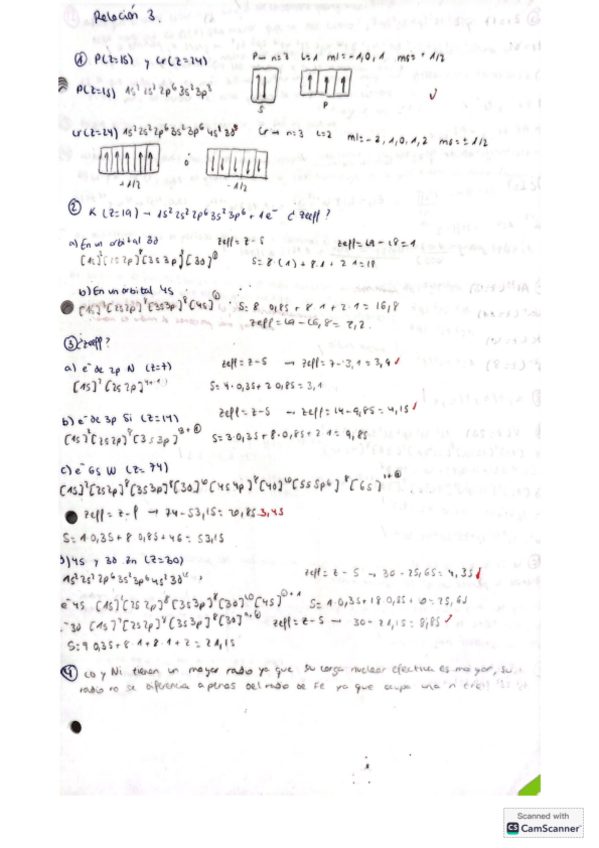 Relación 3.
① P(Z=15) y Cr(Z=24) P → n=3 L=1 ml=-1,0,1 ms=+1/2
P(Z=15) 1s² 2s² 2p⁶ 3s² 3p³
S P
Cr(Z=24) 1s² 2s² 2p⁶ 3s² 3p⁶ 4s¹ 3d⁵ Cr → n=3 L=2 ml=-2,-1,0,1,2 ms=±1/2
ó
+1/2 -1/2
② K (Z=19) → 1s² 2s² 2p⁶ 3s² 3p⁶ + 1e⁻ ¿Zeff?
a) En un orbital 3d Zeff=Z-S Zeff=19-18=1
[1s]² [2s2p]⁸ [3s3p]⁸ [3d]¹ S=8·(1)+8·1+2·1=18
b) En un orbital 4s
[1s]² [2s2p]⁸ [3s3p]⁸ [4s]¹ S=8·0,85+8·1+2·1=16,8
Zeff=19-16,8=2,2.
③ ¿Zeff?
a) e⁻ de 2p N (Z=7) Zeff=Z-S → Zeff=7-3,1=3,9
[1s]² [2s2p]⁴⁺¹ S=4·0,35+2·0,85=3,1
b) e⁻ de 3p Si (Z=14) Zeff=Z-S → Zeff=14-9,85=4,15
[1s]² [2s2p]⁸ [3s3p]³⁺¹ S=3·0,35+8·0,85+2·1=9,85
c) e⁻ 6s W (Z=74)
Zeff=Z-S → 74-53,15=20,85 3,45
S=1·0,35+8·0,85+46=53,15
d) 4s y 3d Zn (Z=30)
1s² 2s² 2p⁶ 3s² 3p⁶ 4s² 3d¹⁰ Zeff=Z-S → 30-25,65=4,35
e⁻ 4s [1s]² [2s2p]⁸ [3s3p]⁸ [3d]¹⁰ [4s]¹⁺¹ S=1·0,35+18·0,85+10=25,65
3d [1s]² [2s2p]⁸ [3s3p]⁸ [3d]⁹⁺¹ Zeff=Z-S → 30-21,15=8,85
S=9·0,35+8·1+8·1+2=21,15
④ Co y Ni tienen un mayor radio ya que su carga nuclear efectiva es mayor, su
radio no se diferencia apenas del radio de Fe ya que ocupa una n
Scanned with
CS CamScanner